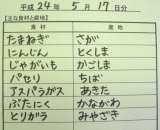 平成 24年 5月 17日分
【主な食材と産地】
食材 産地
たまねぎ さが
にんじん とくしま
じゃがいも かごしま
パセリ ちば
アスパラガス あきた
ぶたにく かながわ
とりガラ みやざき